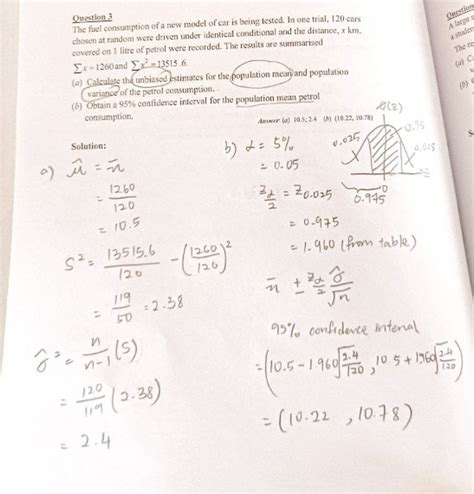 Question 3
The fuel consumption of a new model of car is being tested. In one trial, 120 cars
chosen at random were driven under identical conditional and the distance, x km,
covered on 1 litre of petrol were recorded. The results are summarised
∑x=1260 and ∑x²=13515.6.
(a) Calculate the unbiased estimates for the population mean and population
variance of the petrol consumption.
(b) Obtain a 95% confidence interval for the population mean petrol
consumption.
Answer: (a) 10.5; 2.4 (b) (10.22, 10.78)
Solution:
a) û = x̄
= 1260/120
= 10.5
S² = 13515.6/120 - (1260/120)²
= 119/50 = 2.38
σ̂² = n/n-1 (S)
= 120/119 (2.38)
= 2.4
b) α = 5%
= 0.05
z α/2 = z 0.025
= 0.975
= 1.960 (from table)
x̄ ± z α/2 σ̂/√n
95% confidence interval
= (10.5 - 1.960√2.4/120, 10.5 + 1.960√2.4/120)
= (10.22, 10.78)
0.025
0.95
0.025
0
0.975
Question
A large
a studen
The re
(a) C